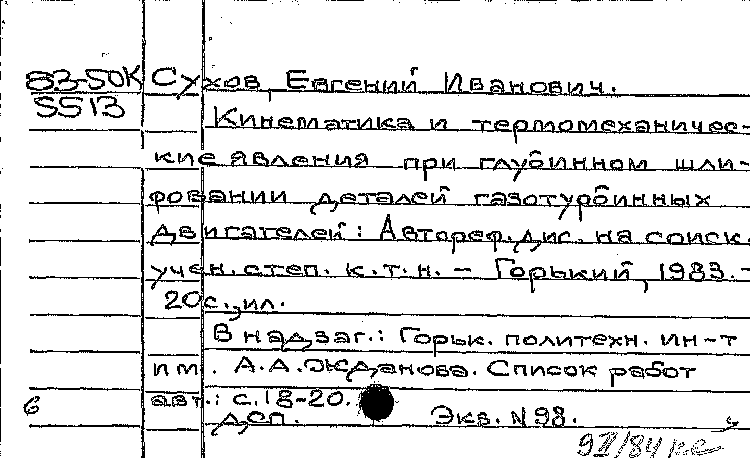 83-50К Сухов, Евгений Иванович.
5513
Кинематика и термомеханичес-
кие явления при глубинном шли-
фовании деталей газотурбинных
двигателей: Автореф. дис. на соиск.
учен. степ. к.т.н. - Горький, 1983.-
20 с., ил.
В надзаг.: Горьк. политехн. ин-т
им. А.А. Жданова. Список работ
авт.: с.18-20.
6 ДСП. Экз. N 98.
9II/84